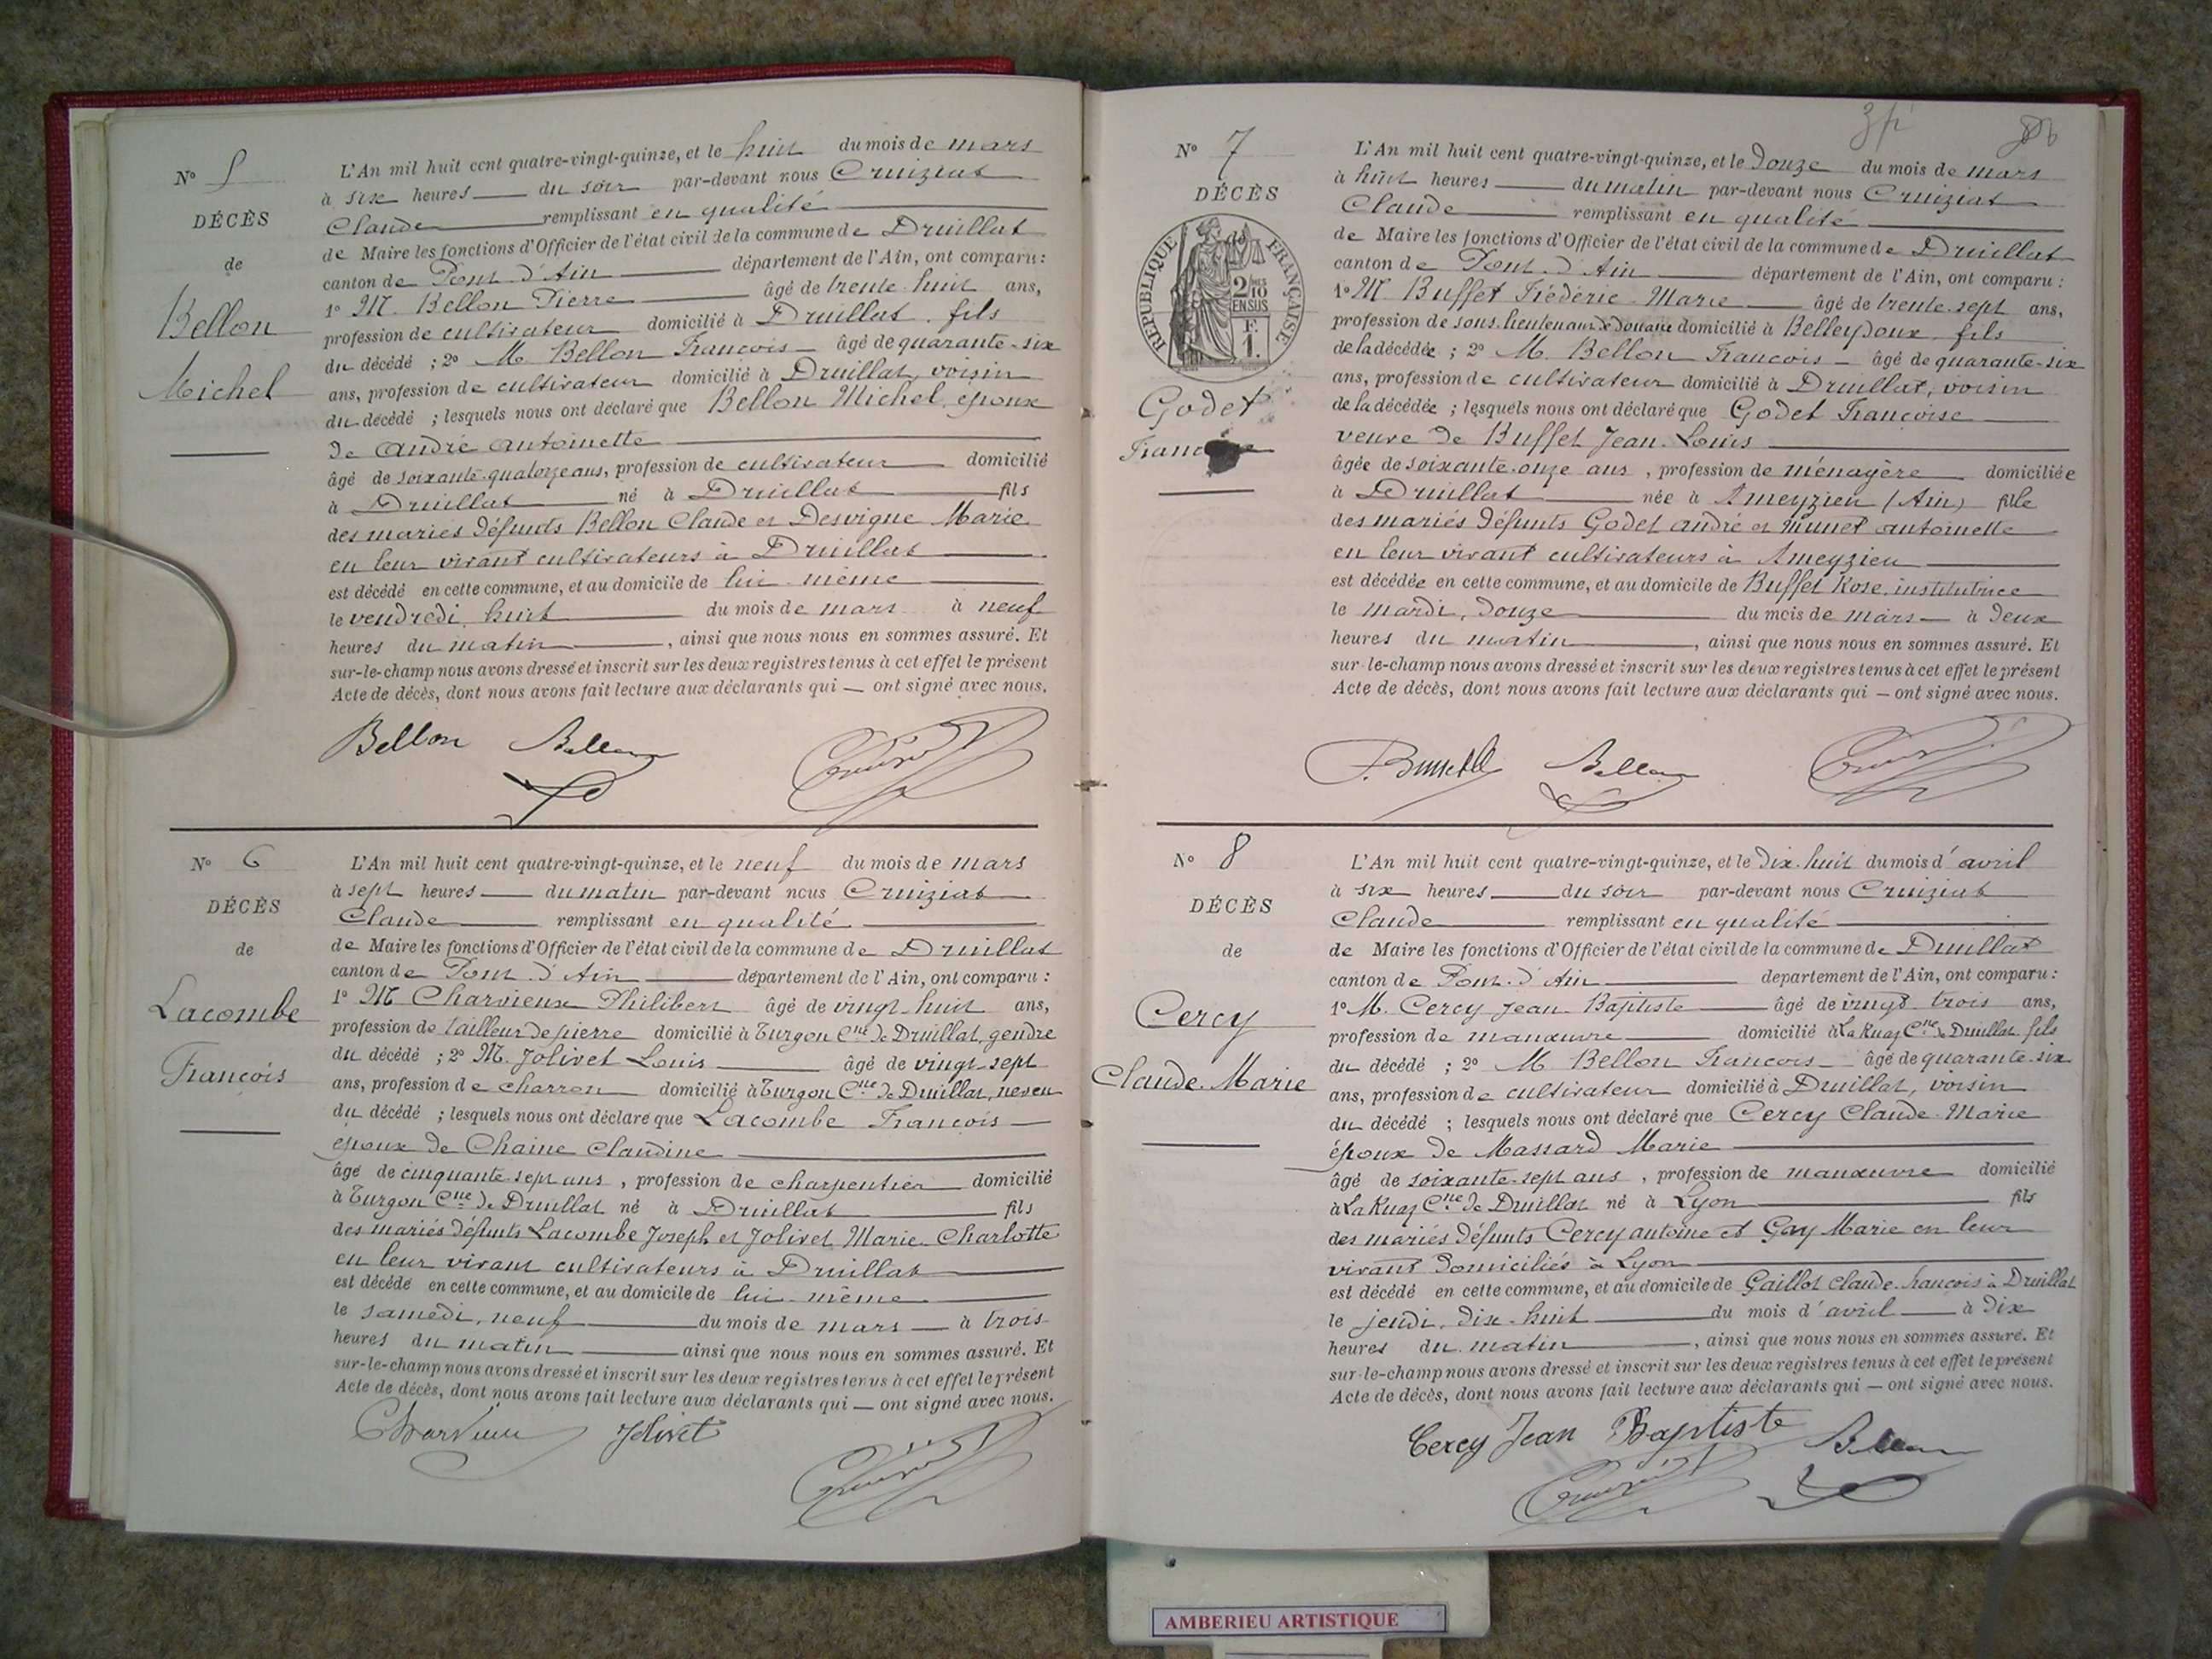 N° 5
DÉCÈS
de
Bellon
Michel
L'An mil huit cent quatre-vingt-quinze, et le huit du mois de mars
à six heures du soir par-devant nous Cruiziat
Claude remplissant en qualité
de Maire les fonctions d'Officier de l'état civil de la commune de Druillat
canton de Pont-d'Ain département de l'Ain, ont comparu :
1° M. Bellon Pierre âgé de trente-huit ans,
profession de cultivateur domicilié à Druillat, fils
du décédé ; 2° M. Bellon François âgé de quarante-six
ans, profession de cultivateur domicilié à Druillat, voisin
du décédé ; lesquels nous ont déclaré que Bellon Michel, époux
de André Antoinette
âgé de soixante-quatorze ans, profession de cultivateur domicilié
à Druillat né à Druillat fils
des mariés défunts Bellon Claude et Desvigne Marie
en leur vivant cultivateurs à Druillat
est décédé en cette commune, et au domicile de lui-même
le vendredi, huit du mois de mars à neuf
heures du matin, ainsi que nous nous en sommes assuré. Et
sur-le-champ nous avons dressé et inscrit sur les deux registres tenus à cet effet le présent
Acte de décès, dont nous avons fait lecture aux déclarants qui — ont signé avec nous.
Bellon Bellon Cruiziat
N° 6
DÉCÈS
de
Lacombe
François
L'An mil huit cent quatre-vingt-quinze, et le neuf du mois de mars
à sept heures du matin par-devant nous Cruiziat
Claude remplissant en qualité
de Maire les fonctions d'Officier de l'état civil de la commune de Druillat
canton de Pont-d'Ain département de l'Ain, ont comparu :
1° M. Charvieux Philibert âgé de vingt-huit ans,
profession de tailleur de pierre domicilié à Turgon Cne de Druillat, gendre
du décédé ; 2° M. Jolivet Louis âgé de vingt-sept
ans, profession de charron domicilié à Turgon Cne de Druillat, neveu
du décédé ; lesquels nous ont déclaré que Lacombe François
époux de Chaine Claudine
âgé de cinquante-sept ans, profession de charpentier domicilié
à Turgon Cne de Druillat né à Druillat fils
des mariés défunts Lacombe Joseph et Jolivet Marie-Charlotte
en leur vivant cultivateurs à Druillat
est décédé en cette commune, et au domicile de lui-même
le samedi, neuf du mois de mars à trois
heures du matin ainsi que nous nous en sommes assuré. Et
sur-le-champ nous avons dressé et inscrit sur les deux registres tenus à cet effet le présent
Acte de décès, dont nous avons fait lecture aux déclarants qui — ont signé avec nous.
Charvieux Jolivet Cruiziat
N° 7
DÉCÈS
RÉPUBLIQUE FRANÇAISE
2/10 EN SUS
F. 1.
Godet
L'An mil huit cent quatre-vingt-quinze, et le douze du mois de mars
à huit heures du matin par-devant nous Cruiziat
Claude remplissant en qualité
de Maire les fonctions d'Officier de l'état civil de la commune de Druillat
canton de Pont-d'Ain département de l'Ain, ont comparu :
1° M. Buffet Frédéric-Marie âgé de trente-sept ans,
profession de sous-lieutenant de douane domicilié à Belleydoux, fils
de la décédée ; 2° M. Bellon François âgé de quarante-six
ans, profession de cultivateur domicilié à Druillat, voisin
de la décédée ; lesquels nous ont déclaré que Godet Françoise
veuve de Buffet Jean-Louis
âgée de soixante-onze ans, profession de ménagère domiciliée
à Druillat née à Ameyzieu (Ain) fille
des mariés défunts Godet André et Munet Antoinette
en leur vivant cultivateurs à Ameyzieu
est décédée en cette commune, et au domicile de Buffet Rose, institutrice
le mardi, douze du mois de mars à deux
heures du matin, ainsi que nous nous en sommes assuré. Et
sur-le-champ nous avons dressé et inscrit sur les deux registres tenus à cet effet le présent
Acte de décès, dont nous avons fait lecture aux déclarants qui — ont signé avec nous.
Bellon Cruiziat
N° 8
DÉCÈS
de
Cercy
Claude-Marie
L'An mil huit cent quatre-vingt-quinze, et le dix-huit du mois d'avril
à six heures du soir par-devant nous Cruiziat
Claude remplissant en qualité
de Maire les fonctions d'Officier de l'état civil de la commune de Druillat
canton de Pont-d'Ain département de l'Ain, ont comparu :
1° M. Cercy Jean-Baptiste âgé de vingt-trois ans,
profession de manœuvre domicilié à La Ruaz Cne de Druillat fils
du décédé ; 2° M. Bellon François âgé de quarante-six
ans, profession de cultivateur domicilié à Druillat, voisin
du décédé ; lesquels nous ont déclaré que Cercy Claude-Marie
époux de Massard Marie
âgé de soixante-sept ans, profession de manœuvre domicilié
à La Ruaz Cne de Druillat né à Lyon fils
des mariés défunts Cercy Antoine et Gay Marie en leur
vivant domiciliés à Lyon
est décédé en cette commune, et au domicile de Gaillot Claude-François à Druillat
le jeudi, dix-huit du mois d'avril à dix
heures du matin, ainsi que nous nous en sommes assuré. Et
sur-le-champ nous avons dressé et inscrit sur les deux registres tenus à cet effet le présent
Acte de décès, dont nous avons fait lecture aux déclarants qui — ont signé avec nous.
Cercy Jean Baptiste Bellon
Cruiziat
AMBERIEU ARTISTIQUE